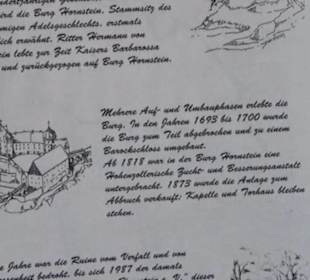 wird die Burg Hornstein. Stammsitz des
migen Adelsgeschlechts, erstmals
ich erwähnt. Ritter Hermann von
in lebte zur Zeit Kaisers Barbarossa
und zurückgezogen auf Burg Hornstein.
Mehrere Auf- und Umbauphasen erlebte die
Burg. In den Jahren 1693 bis 1700 wurde
die Burg zum Teil abgebrochen und zu einem
Barockschloss umgebaut.
Ab 1818 war in der Burg Hornstein eine
Hohenzollerische Zucht- und Besserungsanstalt
untergebracht. 1873 wurde die Anlage zum
Abbruch verkauft: Kapelle und Torhaus bleiben
stehen.
e Jahre war die Ruine vom Verfall und von
essenheit bedroht, bis sich 1987 der damals
V." dieser